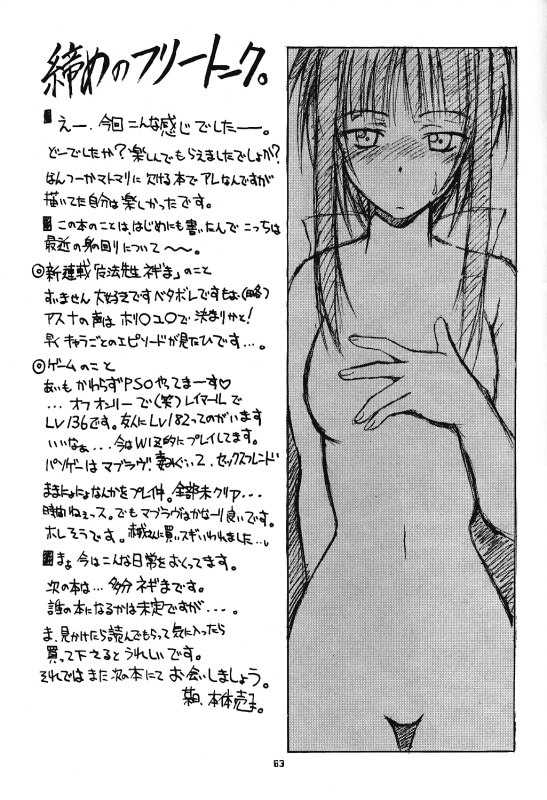 締めのフリートーク。
えー、今回こんな感じでしたー。
どーでしたか?楽しんでもらえましたでしょか?
なんつーかマトマリに欠ける本でアレなんですが
描いてた自分は楽しかったです。
この本のことは、はじめにも書いたんで こっちは
最近の身の回りについて〜〜。
◎新連載「魔法先生 ネギま」のこと
すいません 大好きです ベタボレですもよ(略)
アスナの声はホリ〇ユ〇で決まりかと!
早くキャラごとのエピソードが見たひです…。
◎ゲームのこと
あいもかわらずPSOやってまーす♡
…オフオンリーで(笑)レイマールで
LV136です。友人にLV182ってのがいます
いいなぁ…今はWIZ的にプレイしてます。
パソゲーはマブラヴ、妻みぐい2、セックスフレンド
なんかをプレイ中。全部未クリア…
時間ねぇっス。でもマブラヴはかなーり良いです。
ホレそうです。
まぁ今はこんな日常をおくってます。
次の本は…多分ネギまです。
誰の本になるかは未定ですが…。
ま、見かけたら読んでもらって気に入ったら
買って下さるとうれしいです。
それでは また次の本にて お会いしましょう。
63